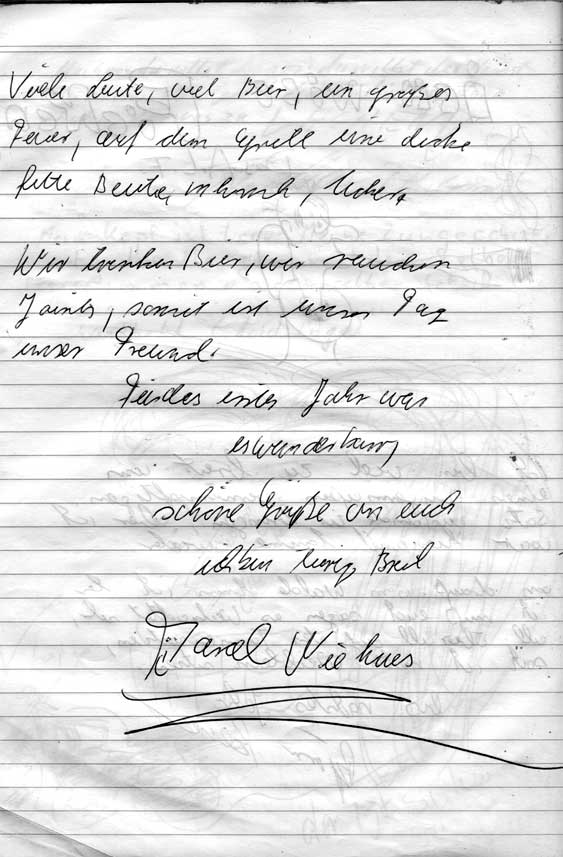 Viele Leute, viel Bier, ein großes
Feuer, auf dem Grill eine dicke
fette Beute, lecker
Wir trinken Bier, wir rauchen
Joints, somit ist unser Tag
unser Freund.
Jahr war
es wunderbar
schöne Grüße an euch
ich bin Breit
Marcel